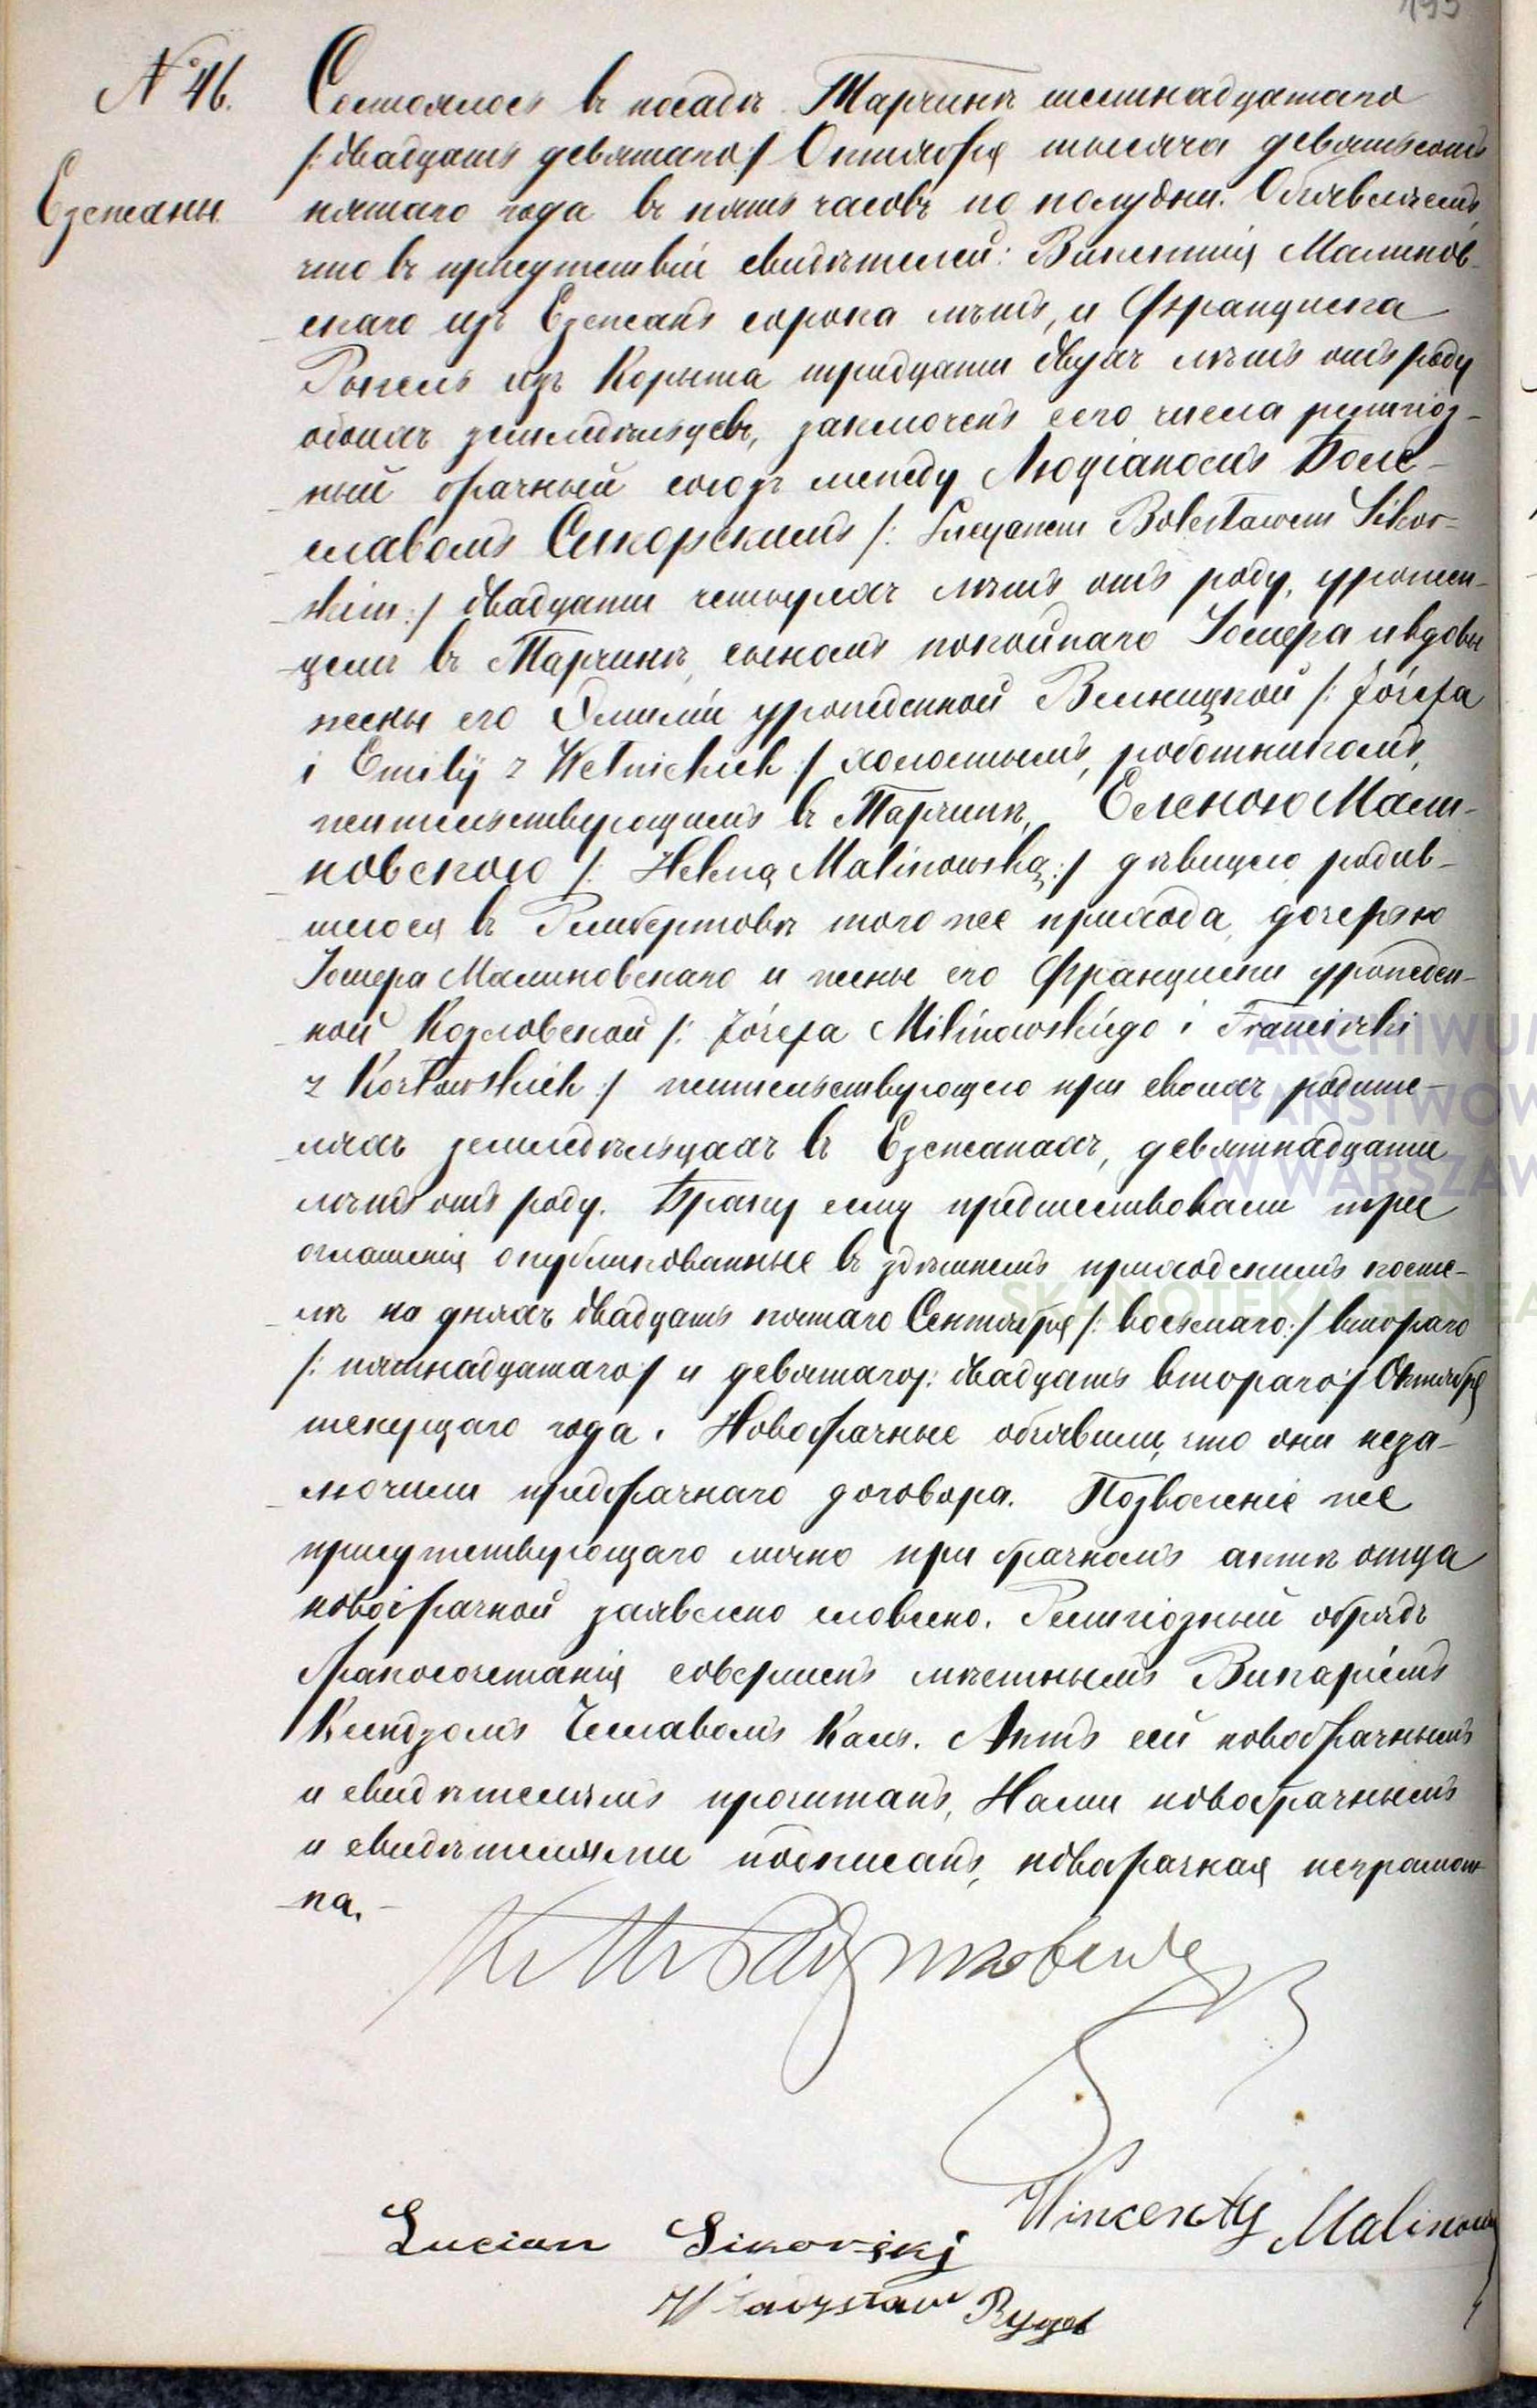 195
№ 46.
Езежаны.
Состоялось въ посадѣ Тарчинѣ шестнадцатаго
/: двадцать девятаго :/ Октября тысяча девятьсотъ
пятаго года въ пять часовъ по полудни. Объявляемъ,
что въ присутствіи свидѣтелей: Викентія Малинов-
скаго изъ Езежанъ сорока лѣтъ, и Франциска
изъ Корыта тридцати двухъ лѣтъ отъ роду
обоихъ земледѣльцевъ, заключенъ сего числа религіоз-
ный брачный союзъ между Люціаномъ Боле-
славомъ Сикорскимъ /: Lucyanem Bolesławem Sikor-
skim :/ двадцати четырехъ лѣтъ отъ роду, урожен-
цемъ въ Тарчинѣ, сыномъ покойнаго Іосифа и вдовы
жены его Эмиліи урожденной Вельницкой /: Józefa
i Emilij z Welnickich :/ холостымъ, работникомъ,
жительствующимъ въ Тарчинѣ, Еленою Мали-
новскою /: Heleną Malinowską :/ дѣвицею родив-
шеюся въ Рембертовѣ того же прихода, дочерью
Іосифа Малиновскаго и жены его Франциски урожден-
ной Козловской /: Józefa Milinowskiego i Franciszki
z Kozłowskich :/ жительствующею при своихъ родите-
ляхъ земледѣльцахъ въ Езежанахъ, девятнадцати
лѣтъ отъ роду. Браку сему предшествовали три
оглашенія опубликованные въ здѣшнемъ приходскимъ косте-
лѣ на дняхъ двадцать пятаго Сентября /: восьмаго :/ втораго
/: пятнадцатаго :/ и девятаго /: двадцать втораго :/ Октября
текущаго года. Новобрачные объявили, что они неза-
лючили предбрачнаго договора. Позволеніе же
присутствующаго лично при брачномъ актѣ отца
новобрачной заявлено словесно. Религіозный обрядъ
бракосочетанія совершенъ мѣстнымъ Викаріемъ
Ксендзомъ Чеславомъ Каль. Актъ сей новобрачнымъ
и свидѣтелямъ прочитанъ, Нами новобрачнымъ
и свидѣтелями подписанъ, новобрачная неграмот-
на.
Wincenty Malinows
Lucian Sikorskj
Władysław
ARCHIWUM
PAŃSTWOW
W WARSZAW
SKANOTEKA GENEA